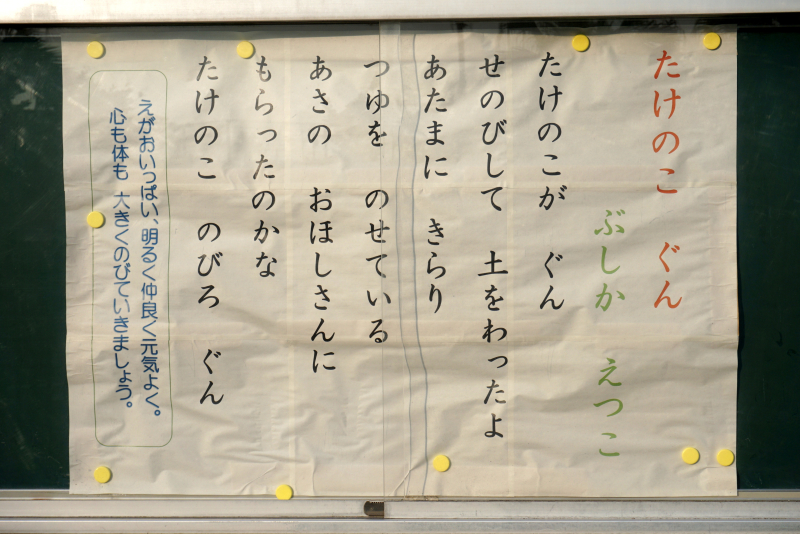 たけのこ　ぐん
ぶしか　えつこ
たけのこが　ぐん
せのびして　土をわったよ
あたまに　きらり
つゆを　のせている
あさの　おほしさんに
もらったのかな
たけのこ　のびろ　ぐん
えがおいっぱい、明るく仲良く元気よく。
心も体も　大きくのびていきましょう。